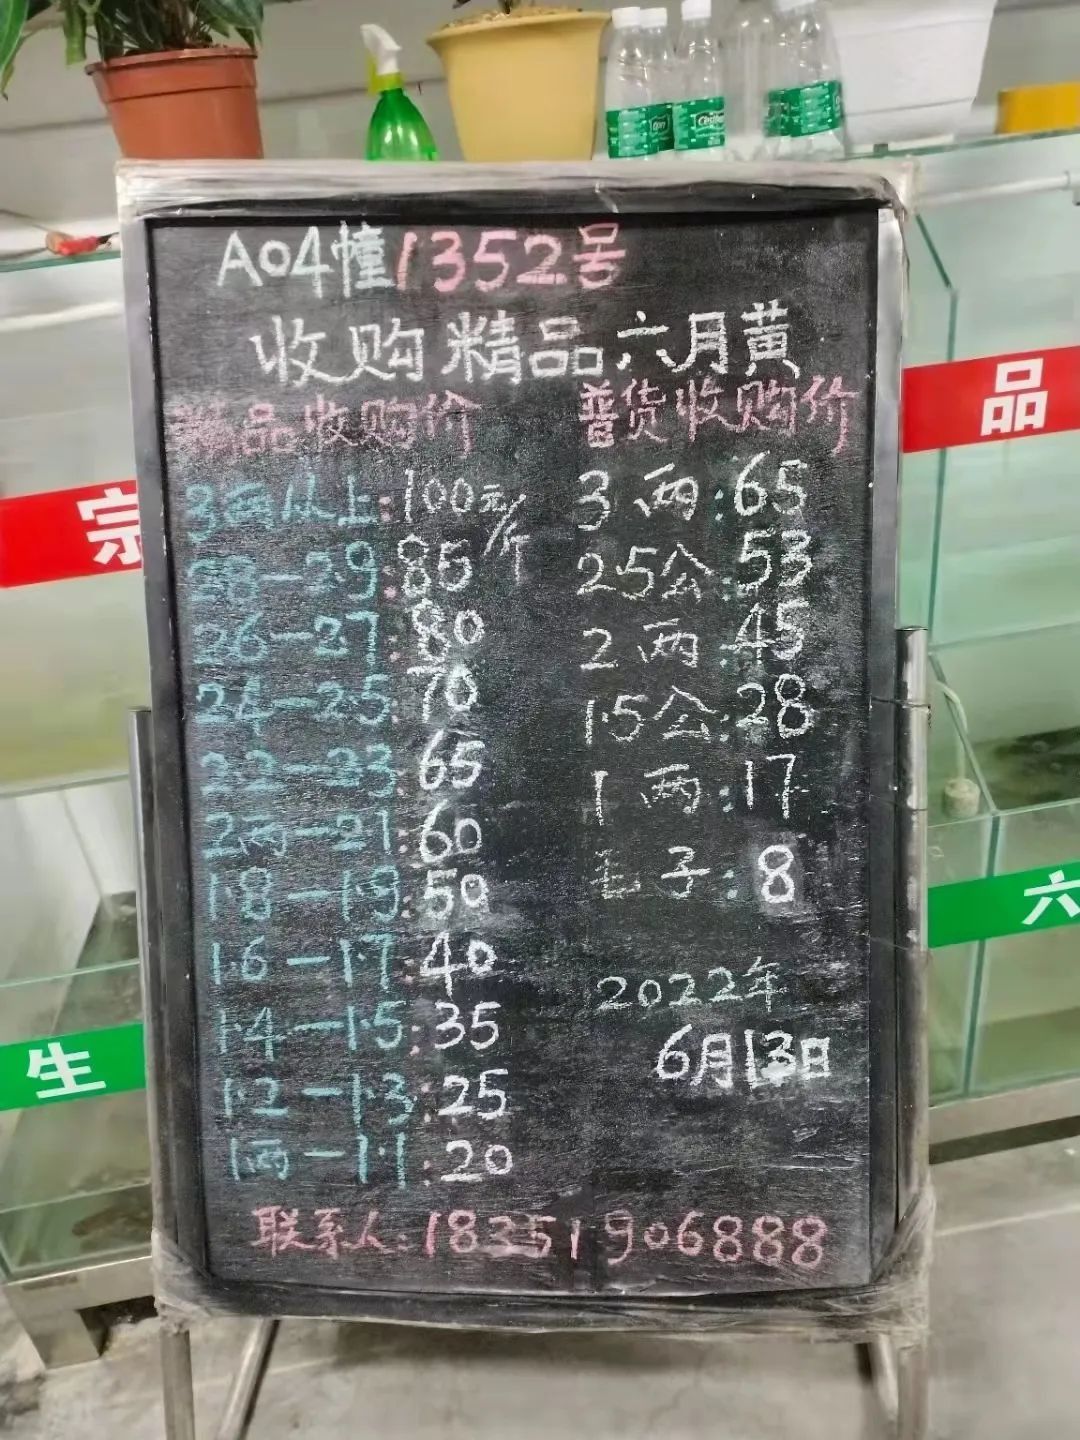 A04幢1352号
收购精品六月黄
精品收购价
3两以上:100元/斤
28-29:85
26-27:80
24-25:70
22-23:65
2两-21:60
1.8-1.9:50
1.6-1.7:40
1.4-1.5:35
1.2-1.3:25
1两-1.1:20
普货收购价
3两:65
2.5公:53
2两:45
1.5公:28
1两:17
毛子:8
2022年
6月13日
联系人:18251906888
宗
品
生
六